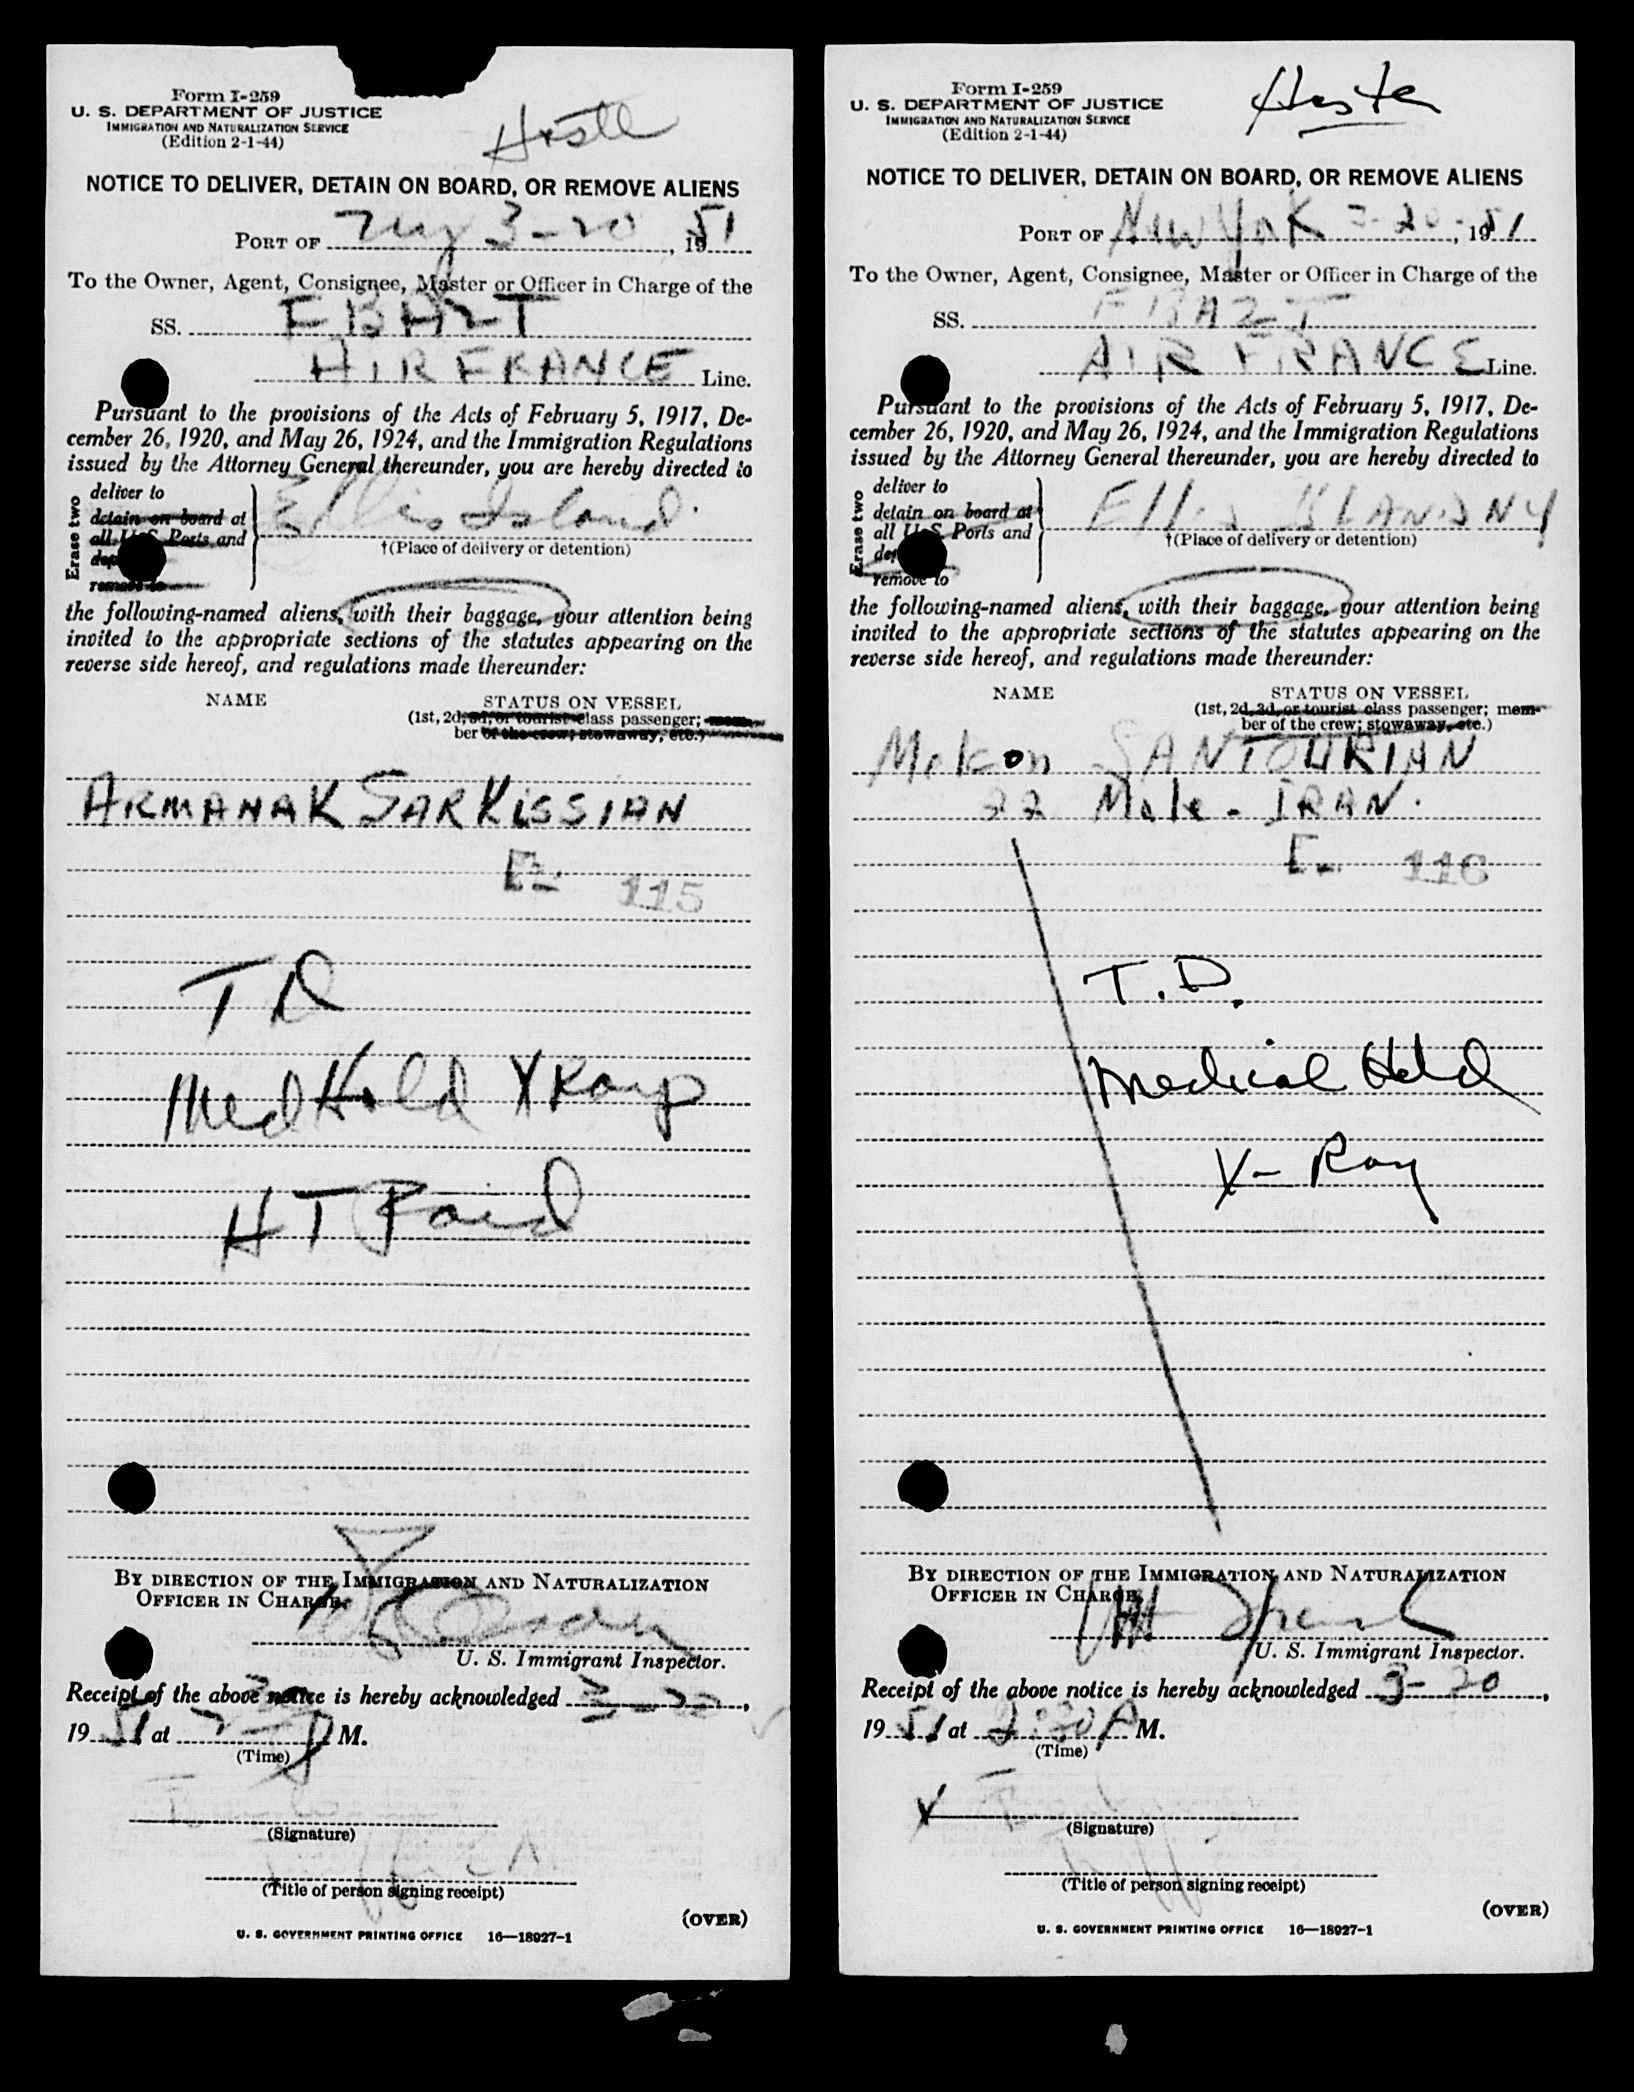 Form I-259
U. S. DEPARTMENT OF JUSTICE
IMMIGRATION AND NATURALIZATION SERVICE
(Edition 2-1-44)
NOTICE TO DELIVER, DETAIN ON BOARD, OR REMOVE ALIENS
PORT OF 3-20, 1951
To the Owner, Agent, Consignee, Master or Officer in Charge of the
SS. FBAZT
AIR FRANCE Line.
Pursuant to the provisions of the Acts of February 5, 1917, De-
cember 26, 1920, and May 26, 1924, and the Immigration Regulations
issued by the Attorney General thereunder, you are hereby directed to
Erase two
deliver to
detain on board at
all U. S. Ports and
remove to
Ellis Island.
†(Place of delivery or detention)
the following-named aliens, with their baggage, your attention being
invited to the appropriate sections of the statutes appearing on the
reverse side hereof, and regulations made thereunder:
NAME
STATUS ON VESSEL
(1st, 2d, 3d, or tourist class passenger; mem-
ber of the crew; stowaway, etc.)
ARMANAK SARKISSIAN
115
T D
Med Hold X Ray
H T Paid
BY DIRECTION OF THE IMMIGRATION AND NATURALIZATION
OFFICER IN CHARGE.
U. S. Immigrant Inspector.
Receipt of the above notice is hereby acknowledged 3-20,
1951 at M.
(Time)
(Signature)
(Title of person signing receipt)
(OVER)
U. S. GOVERNMENT PRINTING OFFICE 16—18927-1
Form I-259
U. S. DEPARTMENT OF JUSTICE
IMMIGRATION AND NATURALIZATION SERVICE
(Edition 2-1-44)
NOTICE TO DELIVER, DETAIN ON BOARD, OR REMOVE ALIENS
PORT OF New York 3-20-, 1951
To the Owner, Agent, Consignee, Master or Officer in Charge of the
SS. FBAZT
AIR FRANCE Line.
Pursuant to the provisions of the Acts of February 5, 1917, De-
cember 26, 1920, and May 26, 1924, and the Immigration Regulations
issued by the Attorney General thereunder, you are hereby directed to
Erase two
deliver to
detain on board at
all U. S. Ports and
remove to
Ellis ISLAND NY
†(Place of delivery or detention)
the following-named aliens, with their baggage, your attention being
invited to the appropriate sections of the statutes appearing on the
reverse side hereof, and regulations made thereunder:
NAME
STATUS ON VESSEL
(1st, 2d, 3d, or tourist class passenger; mem-
ber of the crew; stowaway, etc.)
Melkon SANTOURIAN
22 Male - IRAN.
116
T.D.
Medical Held
X-Ray
BY DIRECTION OF THE IMMIGRATION AND NATURALIZATION
OFFICER IN CHARGE.
U. S. Immigrant Inspector.
Receipt of the above notice is hereby acknowledged 3-20,
1951 at 2:30 P M.
(Time)
X
(Signature)
(Title of person signing receipt)
(OVER)
U. S. GOVERNMENT PRINTING OFFICE 16—18927-1